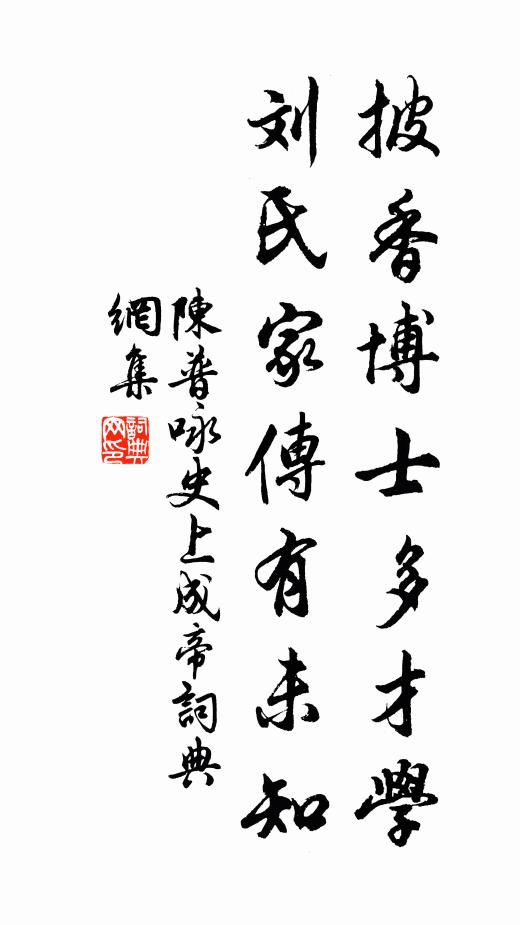 披香博士多才學
刘氏家傳有未知
陳普咏史上成帝詞典
網集
詞典
网印